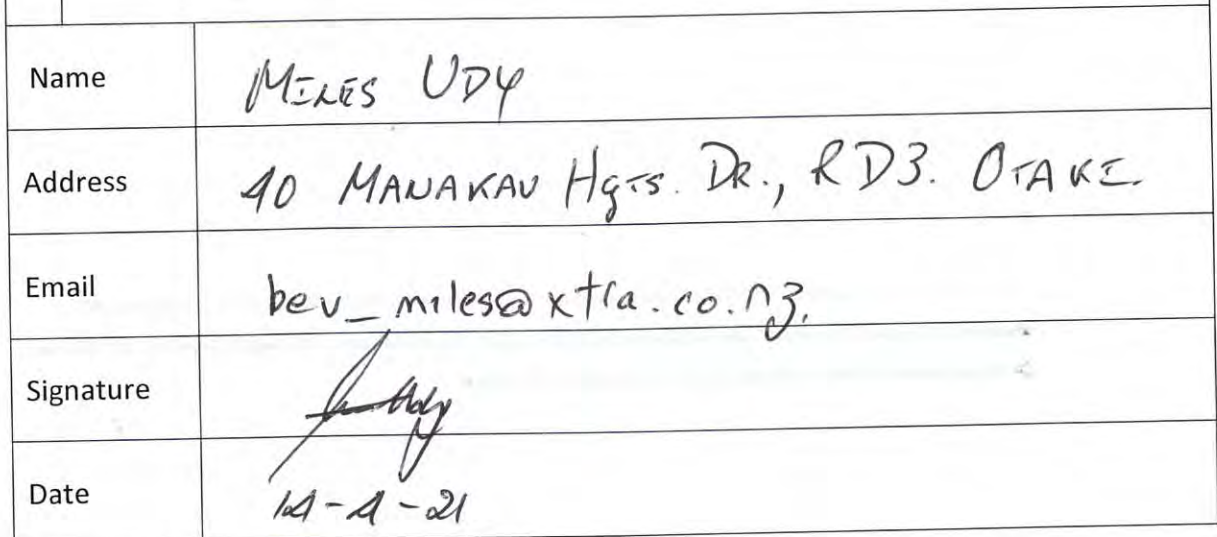 Name MILES UDY
Address 40 MANAKAU Hgts. DR., RD3. OTAKI.
Email bev_miles@xtra.co.nz.
Signature
Date 14-4-21